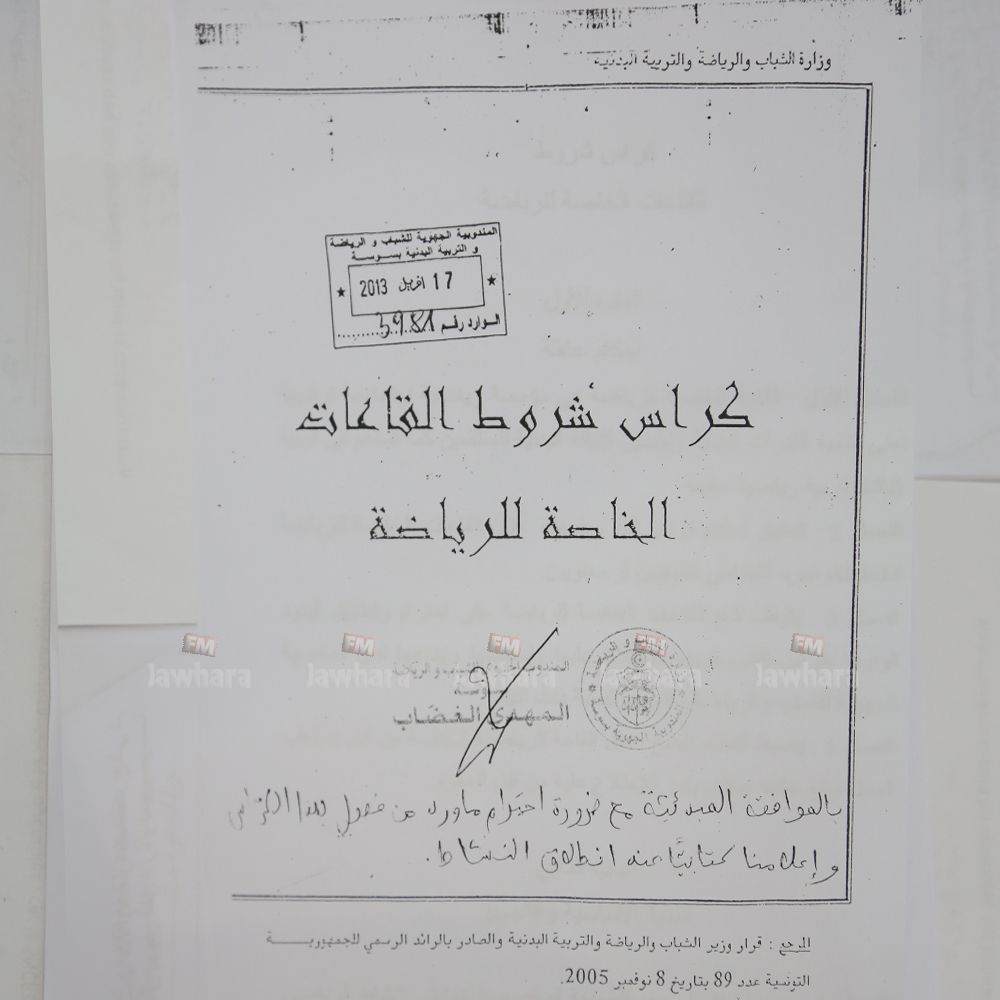 وزارة الشباب والرياضة والتربية البدنية
المندوبية الجهوية للشباب و الرياضة
و التربية البدنية بسوسة
17 افريل 2013
الوارد رقم 3981
كراس شروط القاعات
الخاصة للرياضة
FM FM FM FM FM
Jawhara Jawhara Jawhara Jawhara Jawhara
المندوب الجهوي للشباب و الرياضة
بسوسة
المهدي الغضاب
بالموافقة المبدئية مع ضرورة احترام ماورد من فصول بهذا الكراس
و إعلامنا كتابيًا عند انطلاق النشاط.
المرجع : قرار وزير الشباب والرياضة والتربية البدنية والصادر بالرائد الرسمي للجمهوريـــة
التونسية عدد 89 بتاريخ 8 نوفمبر 2005.